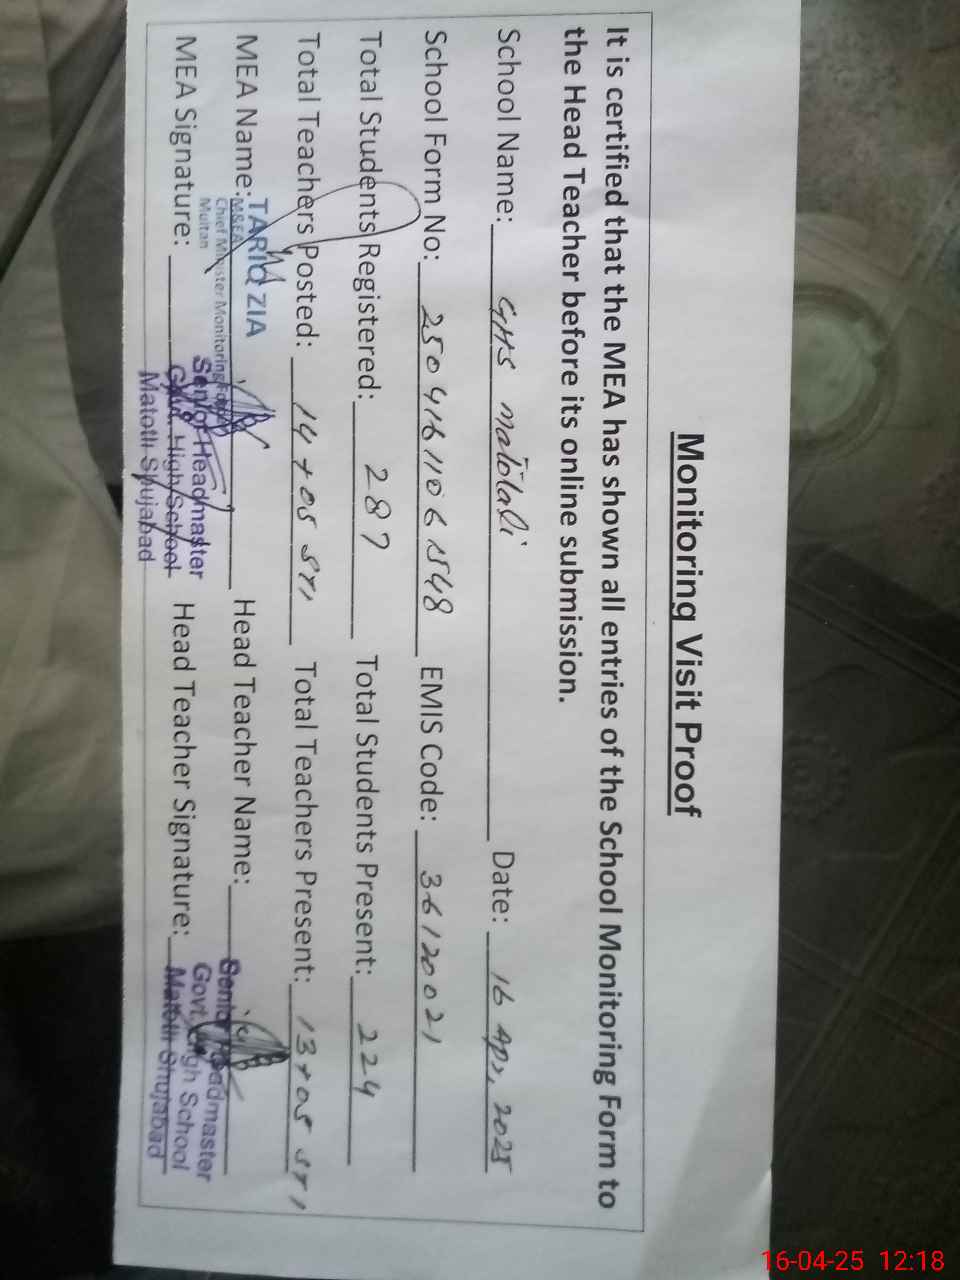 Monitoring Visit Proof
It is certified that the MEA has shown all entries of the School Monitoring Form to
the Head Teacher before its online submission.
School Name: GHS matotali Date: 16 Apr, 2025
School Form No: 25041611061548 EMIS Code: 36120021
Total Students Registered: 287 Total Students Present: 224
Total Teachers Posted: 14+05 STI Total Teachers Present: 13+05 STI
MEA Name: TARIQ ZIA Head Teacher Name:
M&EA
Chief Minister Monitoring Force
Multan
MEA Signature: Head Teacher Signature:
Senior Headmaster
Govt. High School
Matotli Shujabad
Senior Headmaster
Govt. High School
Matotli Shujabad
16-04-25 12:18